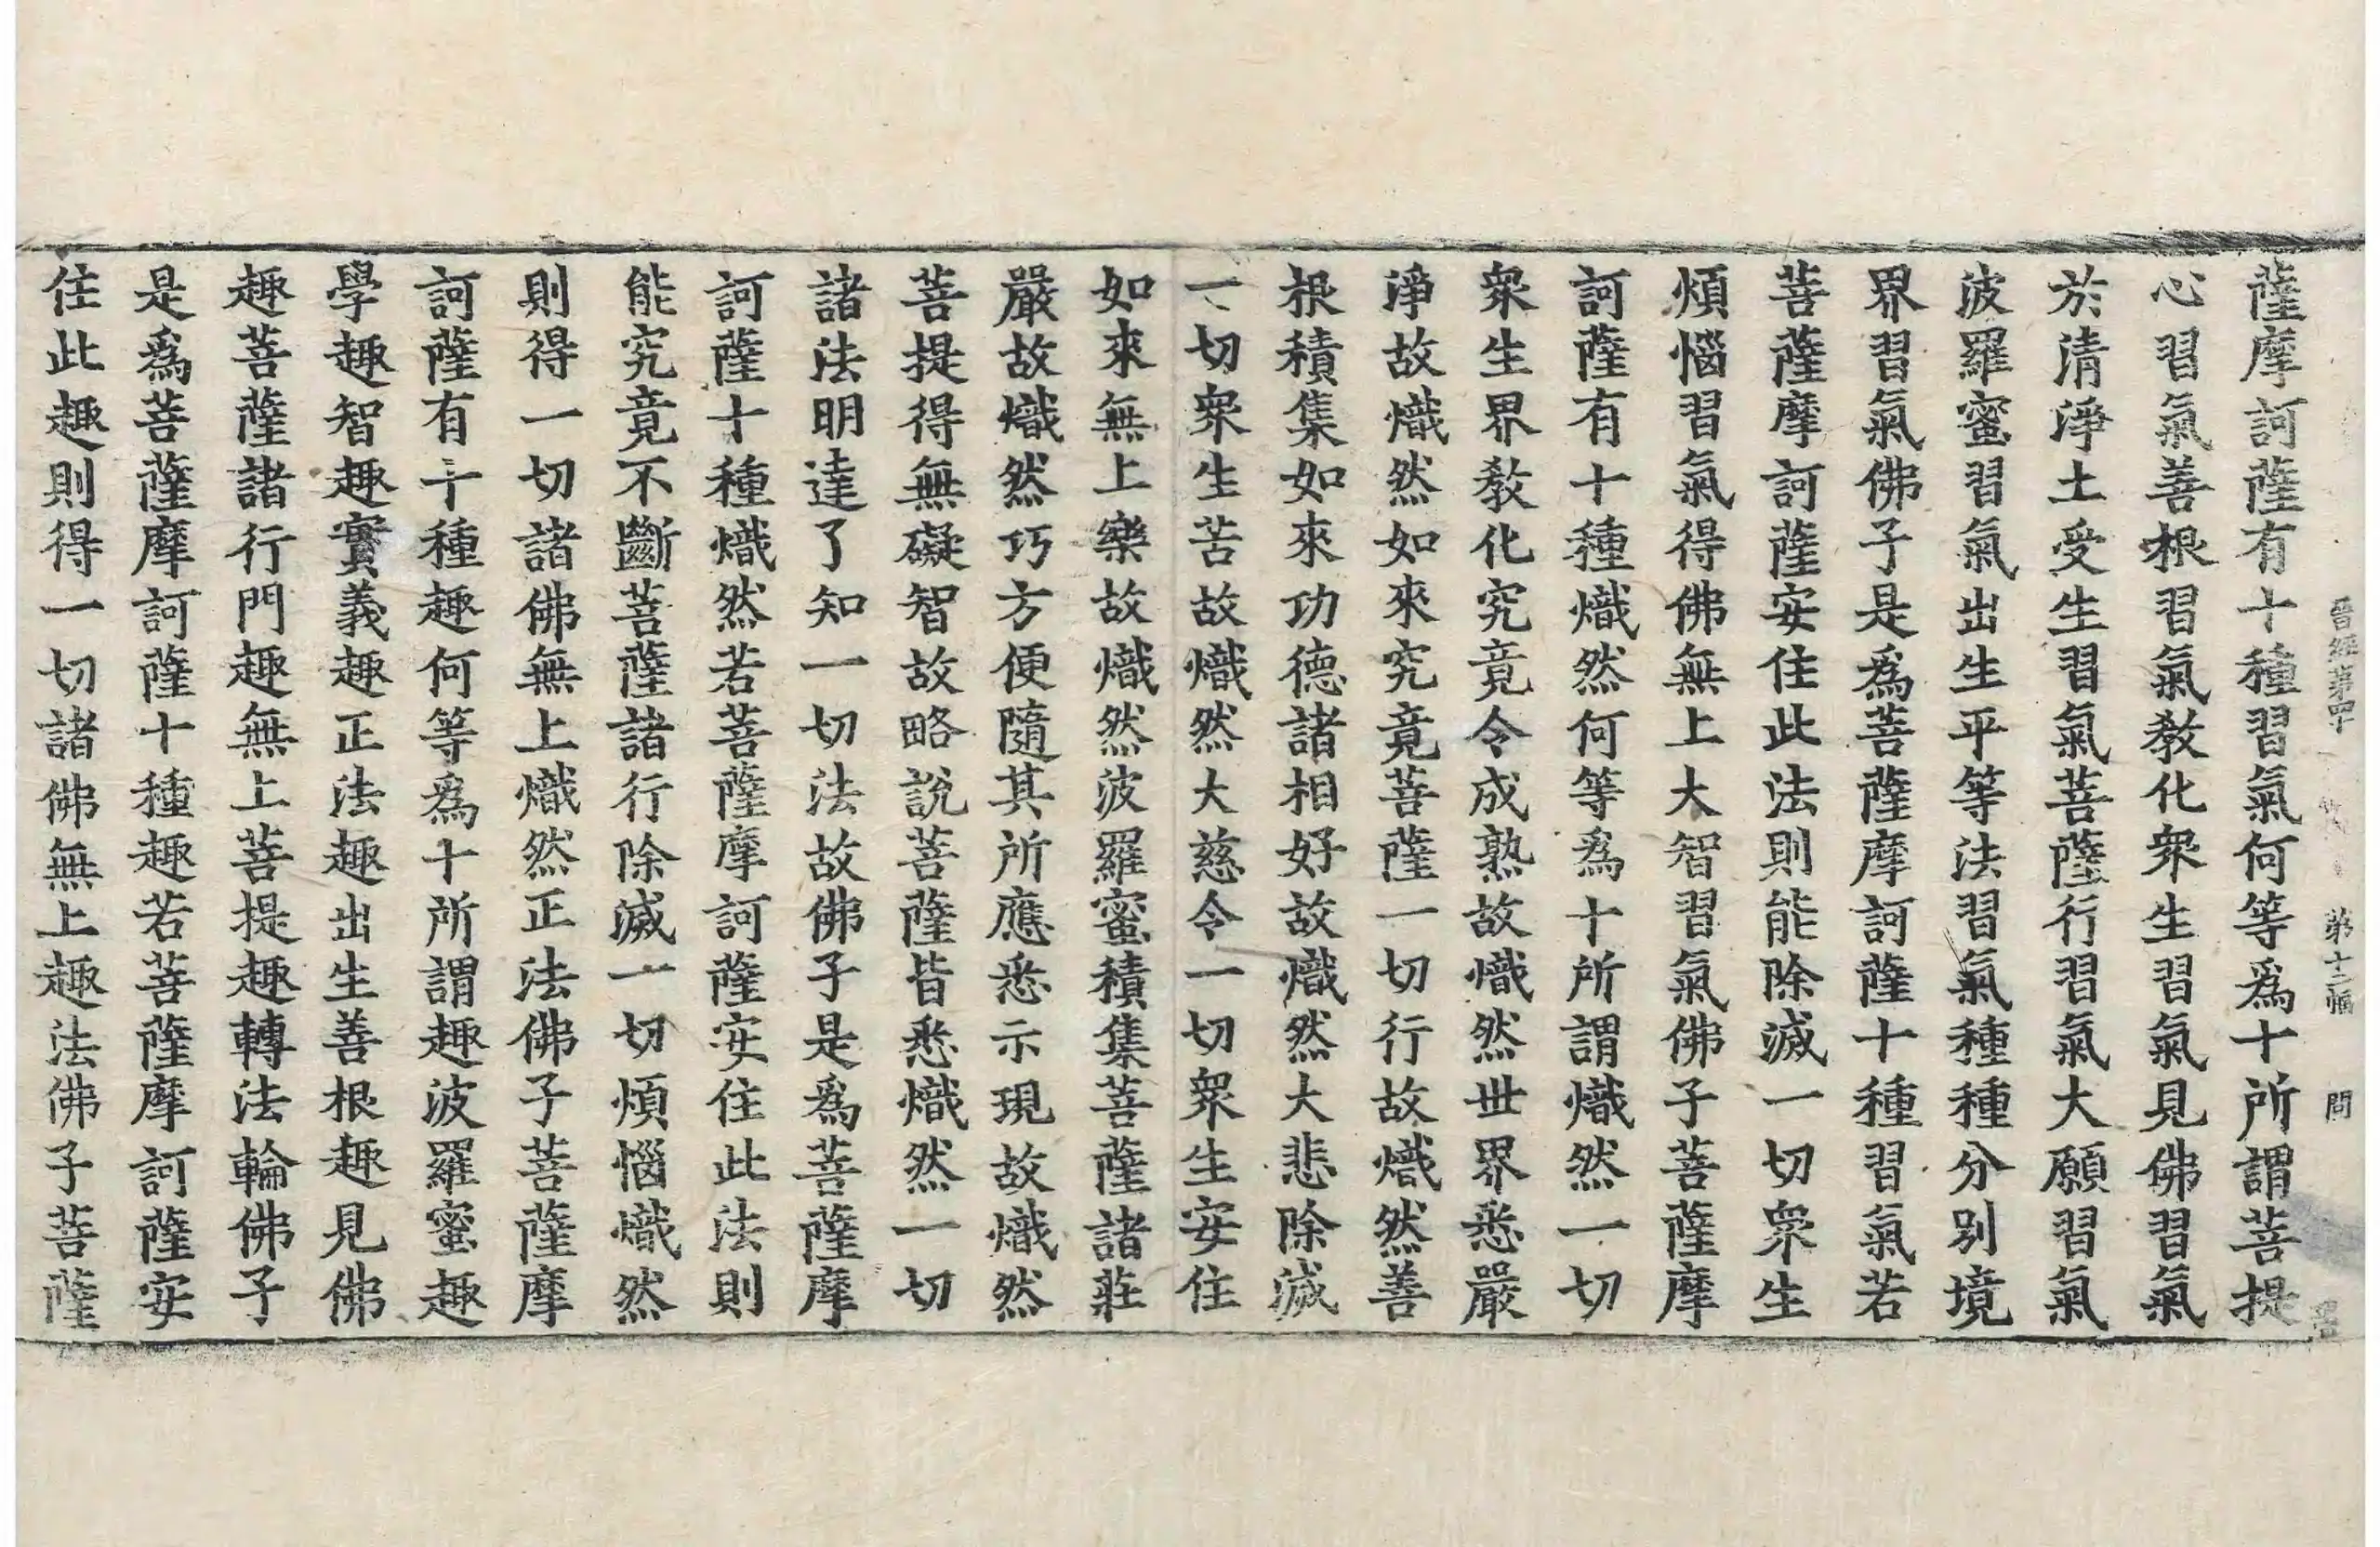 晋經第四十 第十二幅 問
薩摩訶薩有十種習氣何等爲十所謂菩提
心習氣善根習氣教化衆生習氣見佛習氣
於清淨土受生習氣菩薩行習氣大願習氣
波羅蜜習氣出生平等法習氣種種分別境
界習氣佛子是爲菩薩摩訶薩十種習氣若
菩薩摩訶薩安住此法則能除滅一切衆生
煩惱習氣得佛無上大智習氣佛子菩薩摩
訶薩有十種熾然何等爲十所謂熾然一切
衆生界教化究竟令成熟故熾然世界悉嚴
淨故熾然如來究竟菩薩一切行故熾然善
根積集如來功德諸相好故熾然大悲除滅
一切衆生苦故熾然大慈令一切衆生安住
如來無上樂故熾然波羅蜜積集菩薩諸莊
嚴故熾然巧方便隨其所應悉示現故熾然
菩提得無礙智故略說菩薩皆悉熾然一切
諸法明達了知一切法故佛子是爲菩薩摩
訶薩十種熾然若菩薩摩訶薩安住此法則
能究竟不斷菩薩諸行除滅一切煩惱熾然
則得一切諸佛無上熾然正法佛子菩薩摩
訶薩有十種趣何等爲十所謂趣波羅蜜趣
學趣智趣實義趣正法趣出生善根趣見佛
趣菩薩諸行門趣無上菩提趣轉法輪佛子
是爲菩薩摩訶薩十種趣若菩薩摩訶薩安
住此趣則得一切諸佛無上趣法佛子菩薩